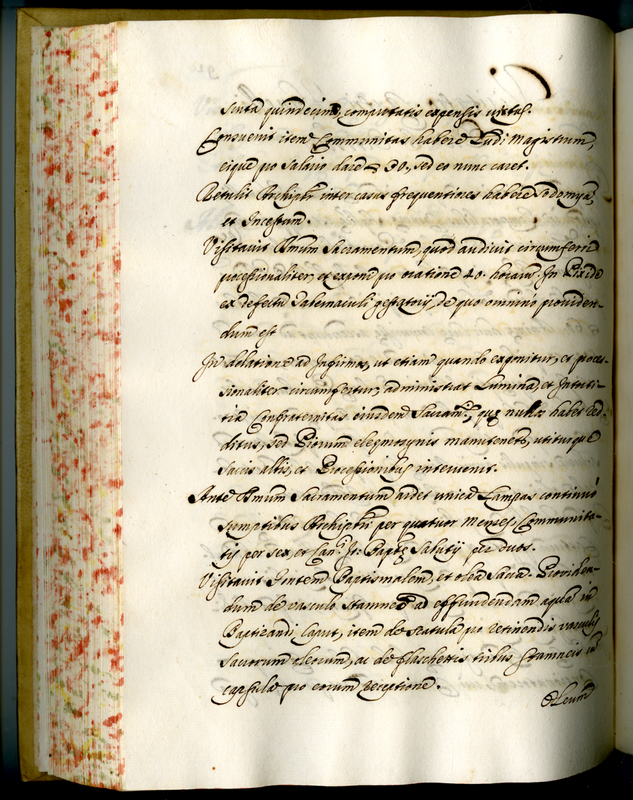 scuta quindecim, computatis expensis victus.
Consuevit item Communitas habere Ludi Magistrum,
eique pro salario dare 30, sed eo nunc caret.
Retulit Archipr. inter casus frequentiores habere sodomiã,
et Incestum.
Visitavit Sm̃um Sacramentum, quod audivit circumferri
processionaliter, et exponi pro oratione 40. horarũ. In Pixide
ex defectu Tabernaculi gestatorij, de quo omnino providen-
dum est
In delatione ad Infirmos, ut etiam quando exponitur, et proces-
sionaliter circumfertur, administrat Lumina, et Intorti-
tia Confraternitas eiusdem Sacram.ti, quæ nullos habet red-
ditus, sed Piorum eleemosynis manutenetr, utiturque
Saccis albis, et Processionibus intervenit.
Ante Sm̃um Sacramentum ardet unica Lampas continuo
sumptibus Archipr̃i per quatuor Menses, Communita-
tis per sex, et Jo: Baptæ Salutij per duos.
Visitavit Fontem Baptismalem, et olea Sacra. Providen-
dum de vasculo stamneo ad effundendam aquam in
Baptizandi Caput, item de scatula pro retinendis vasculis
Sacrorum oleorum, ac de flaschettis tribus stamneis in
capsula pro eorum receptione.
Oleum